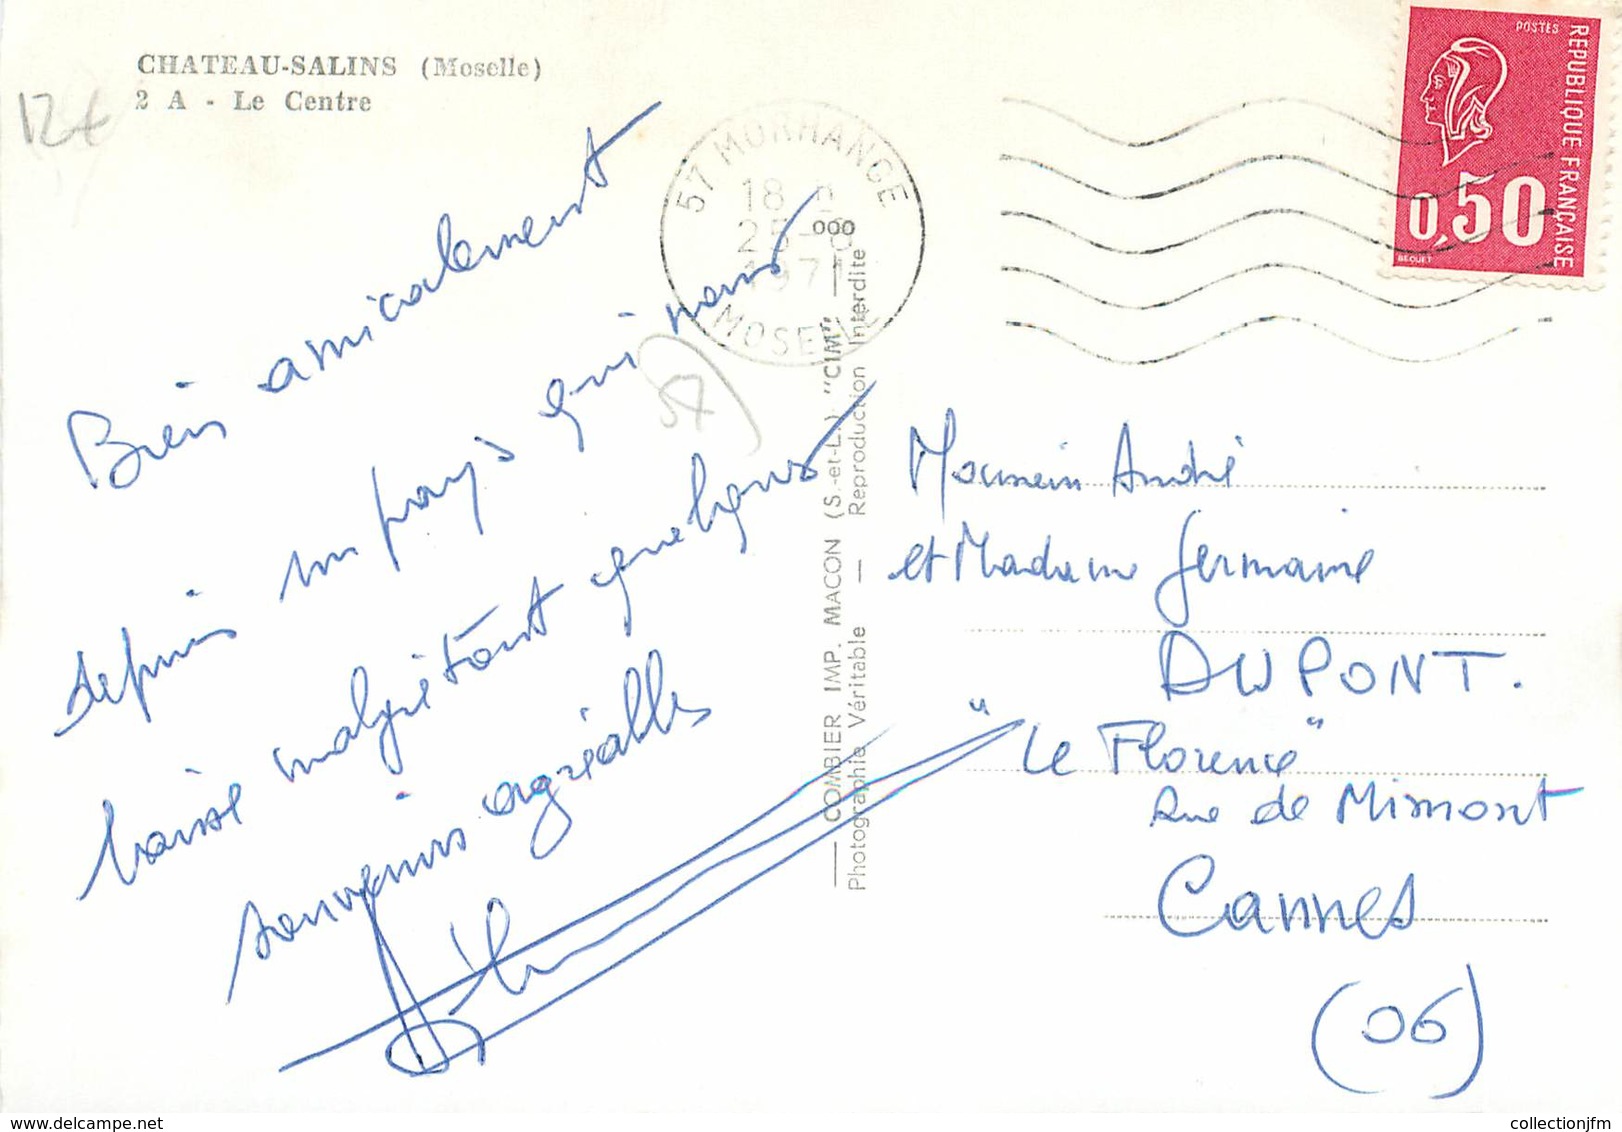 CHATEAU-SALINS (Moselle)
2 A - Le Centre
12€
Bien amicalement
depuis un pays qui nous
laisse malgré tout quelques
souvenirs agréables
57 MORHANGE
18 H
25-6
1971
MOSELLE
57
COMBIER IMP. MACON (S.-et-L.) "CIM"
Photographie Véritable — Reproduction Interdite
POSTES
REPUBLIQUE FRANÇAISE
0,50
BEQUET
Monsieur André
et Madame Germaine
DUPONT.
"Le Florence"
rue de Mimont
Cannes
(06)
collectionjfm
www.delcampe.net